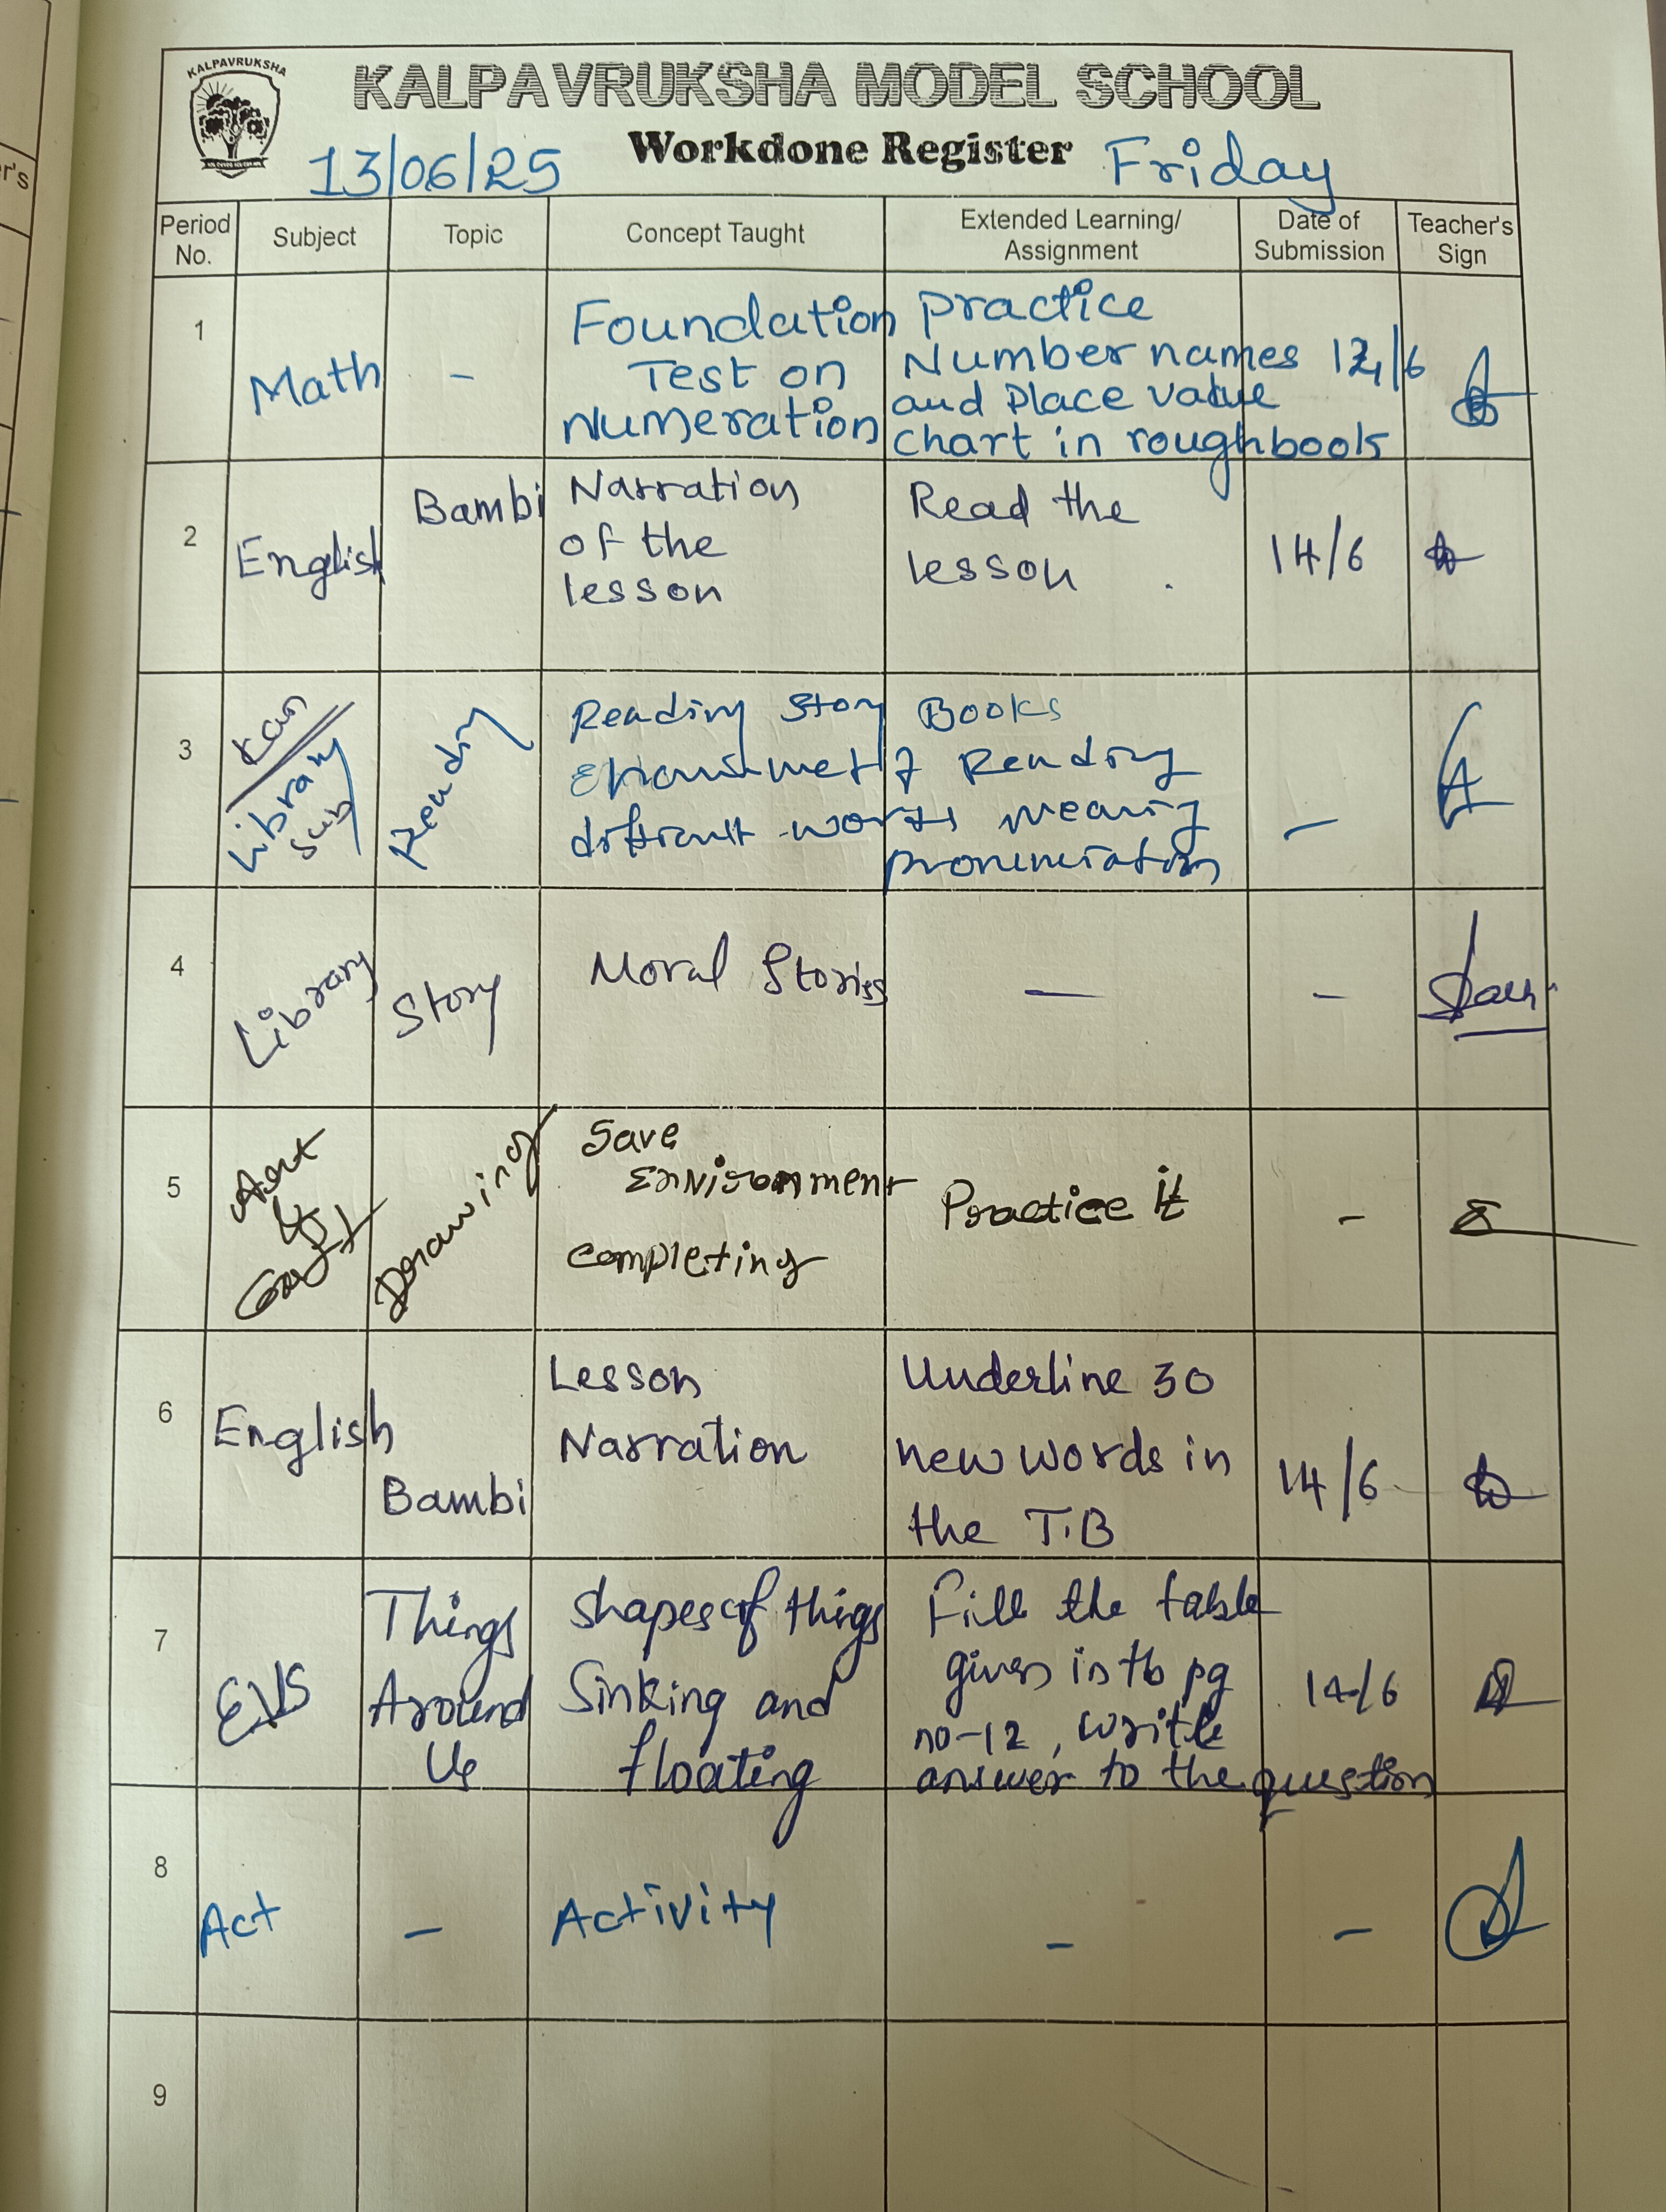 r's
KALPAVRUKSHA
KALPAVRUKSHA MODEL SCHOOL
13/06/25 Workdone Register Friday
Period No. Subject Topic Concept Taught Extended Learning/ Assignment Date of Submission Teacher's Sign
1 Math - Foundation Test on Numeration Practice Number names and Place value chart in roughbook
2 English Bambi Narration of the lesson Read the lesson . 14/6
3 Kan Library Sub Reading Reading Story Books
of Reading
difficult words meaning
pronunciation -
4 Library Story Moral Stories — -
5 Art & Craft Drawing Save Environment completing Practice it -
6 English Bambi Lesson Narration Underline 30 new words in the T.B 14/6
7 EVS Things Around Us Shapes of things Sinking and floating Fill the table given in tb pg no-12, write answer to the question 14/6
8 Act - Activity - -
9